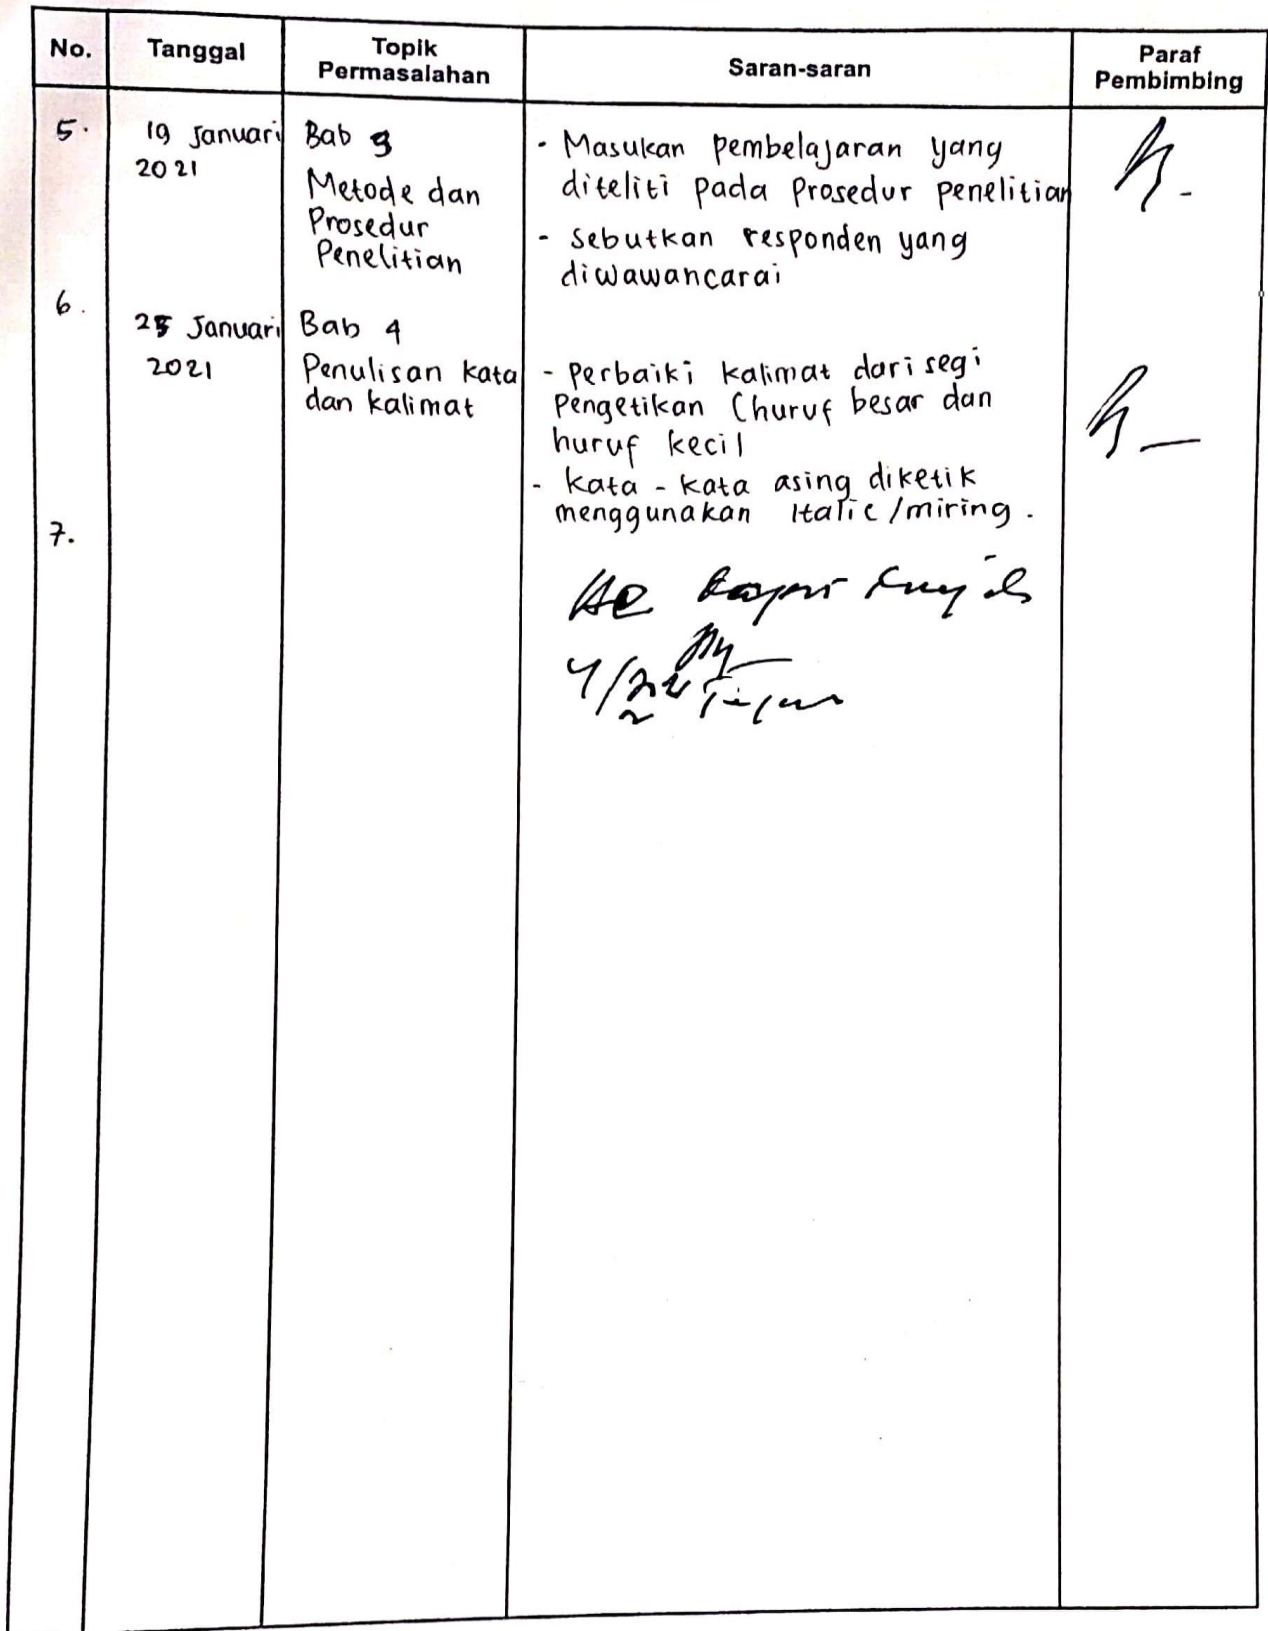 No. Tanggal Topik Permasalahan Saran-saran Paraf Pembimbing
5. 19 Januari 2021
Bab 3
Metode dan
Prosedur
Penelitian
- Masukan pembelajaran yang
diteliti pada Prosedur penelitian
- Sebutkan responden yang
diwawancarai
6. 25 Januari
2021
Bab 4
Penulisan kata
dan kalimat
- Perbaiki kalimat dari segi
Pengetikan (huruf besar dan
huruf kecil
- kata - kata asing diketik
menggunakan Italic/miring.
7.